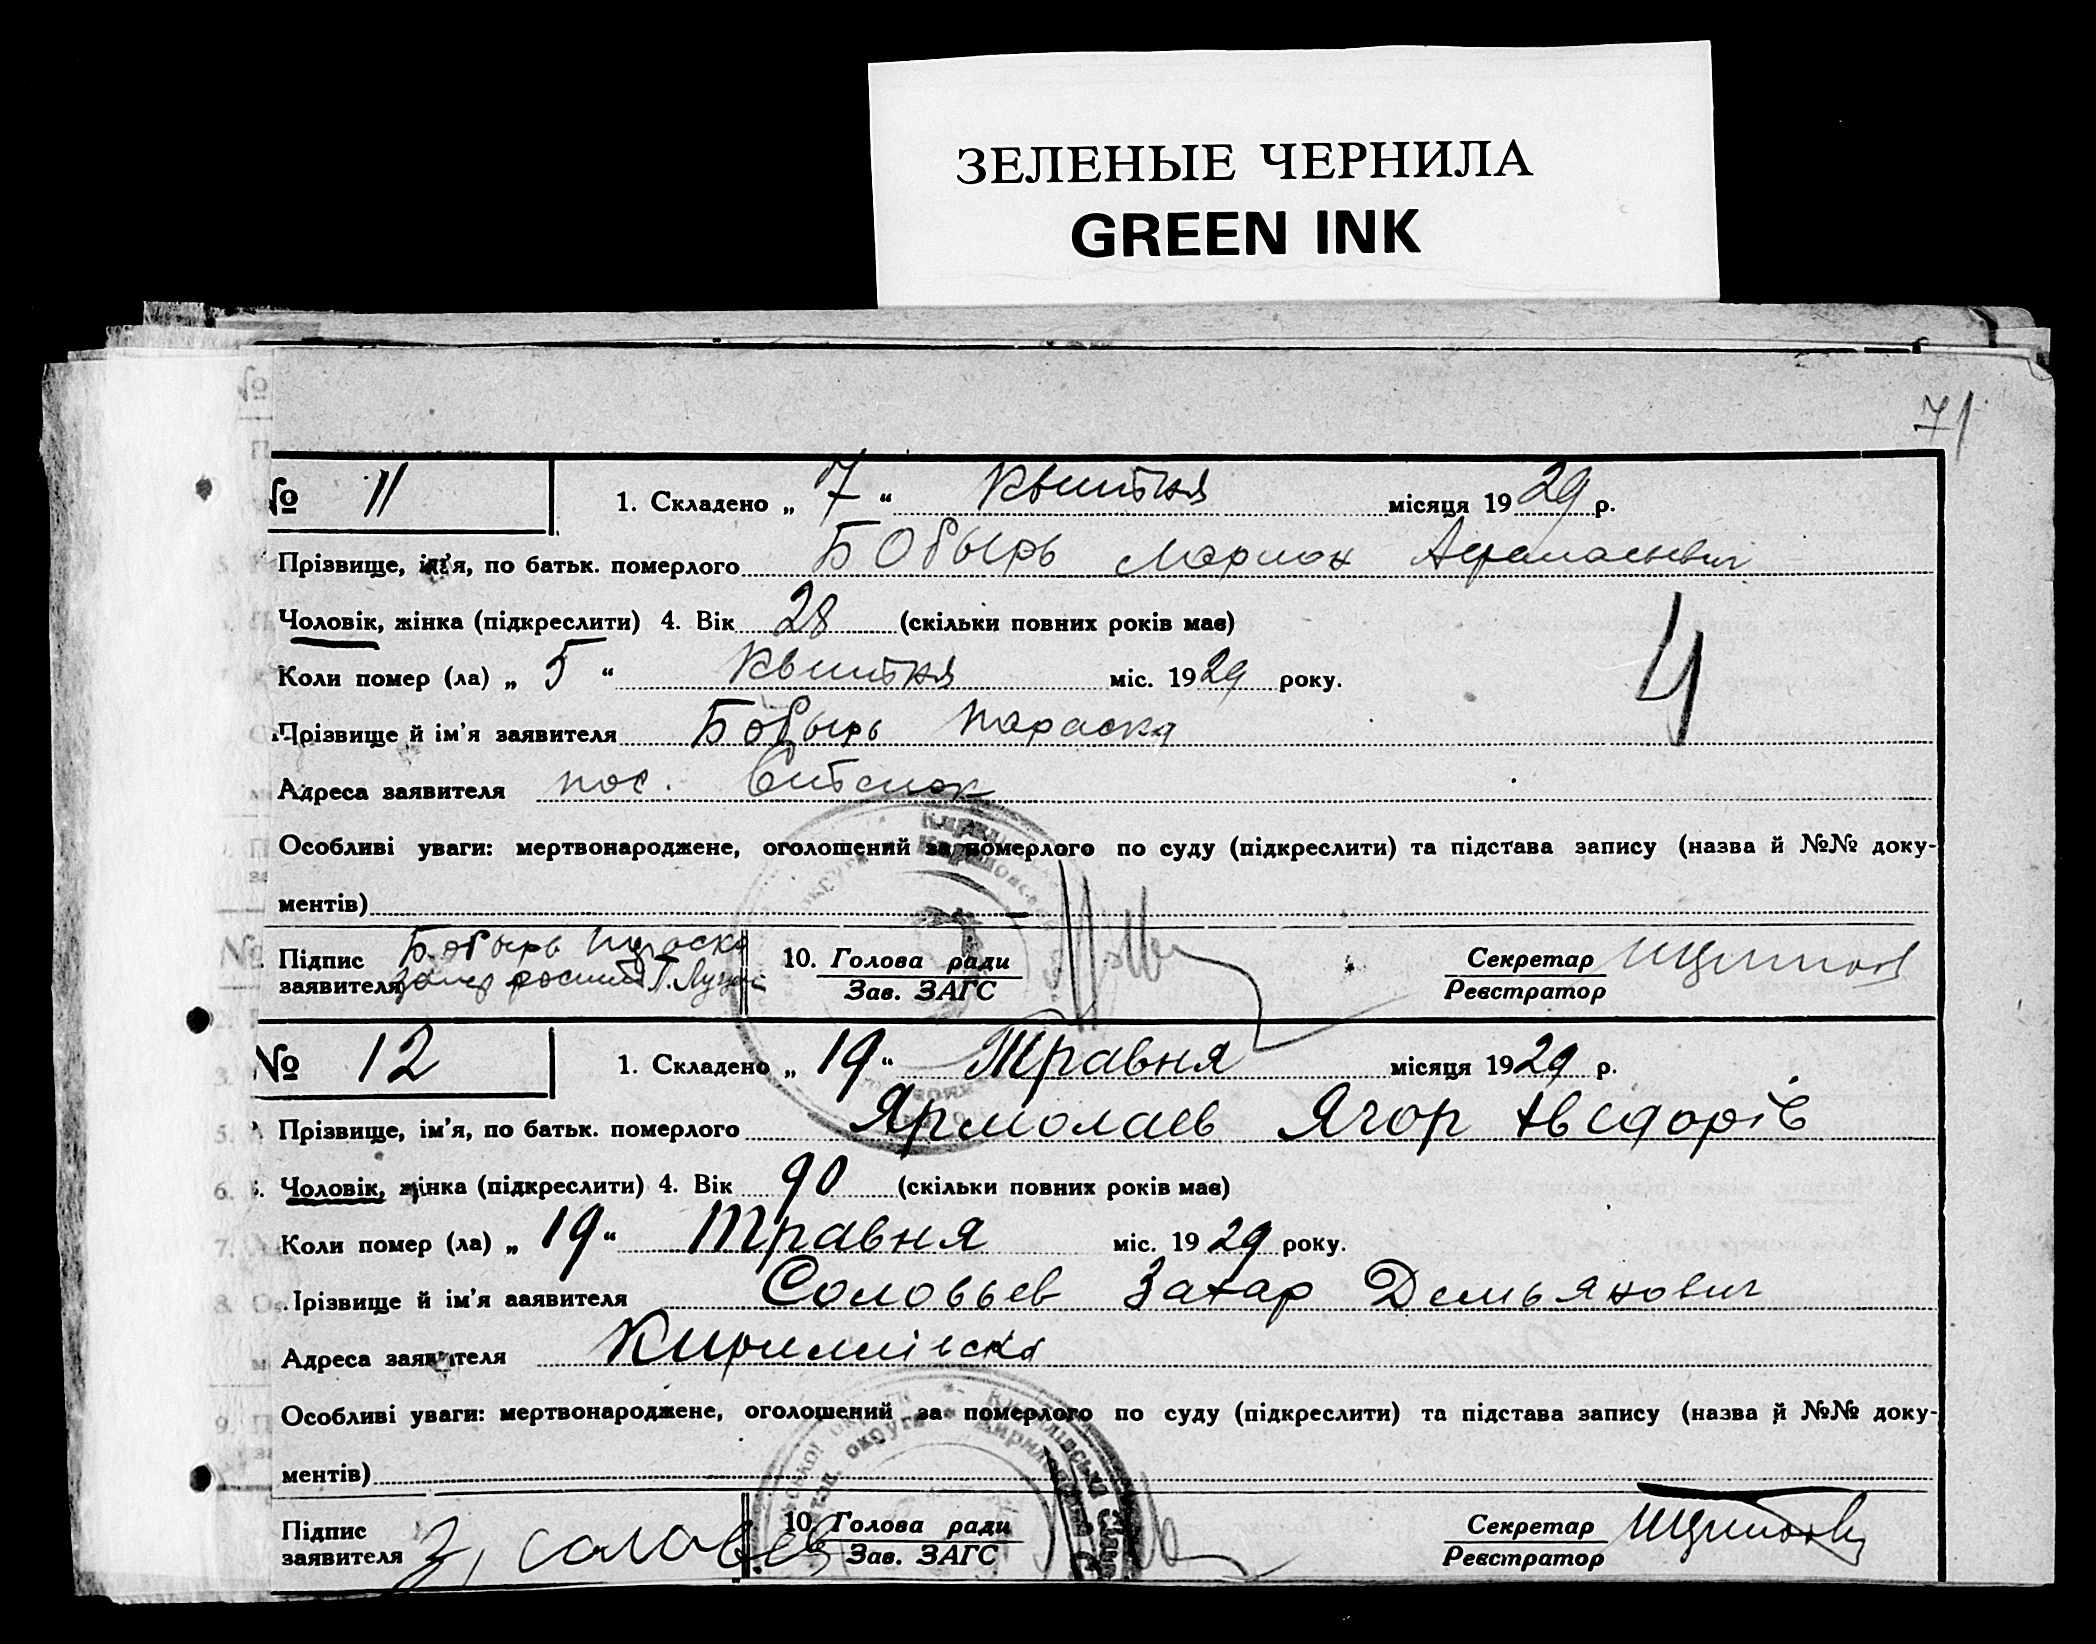 ЗЕЛЕНЫЕ ЧЕРНИЛА
GREEN INK
71
№ 11
1. Складено „ 7 “ Квитня місяця 1929 р.
Прізвище, ім’я, по батьк. померлого Бобырь Марион Афанасьевич
Чоловік, жінка (підкреслити) 4. Вік 28 (скільки повних років має)
4
Коли помер (ла) „ 5 “ Квитня міс. 1929 року.
Прізвище й ім’я заявителя Бобырь Параска
Адреса заявителя пос.
Особливі уваги: мертвонароджене, оголошений за померлого по суду (підкреслити) та підстава запису (назва й №№ доку-
ментів)
Підпис заявителя Бобырь Параска
10. Голова ради
Зав. ЗАГС
Секретар
Реєстратор
№ 12
1. Складено „ 19 “ Травня місяця 1929 р.
Прізвище, ім’я, по батьк. померлого Ярмолаев Ягор Авсдорів
Чоловік, жінка (підкреслити) 4. Вік 90 (скільки повних років має)
Коли помер (ла) „ 19 “ Травня міс. 1929 року.
Прізвище й ім’я заявителя Соловьев Захар Демьянович
Адреса заявителя Кириллівска
Особливі уваги: мертвонароджене, оголошений за померлого по суду (підкреслити) та підстава запису (назва й №№ доку-
ментів)
Підпис заявителя З, саловьев
10. Голова ради
Зав. ЗАГС
Секретар
Реєстратор